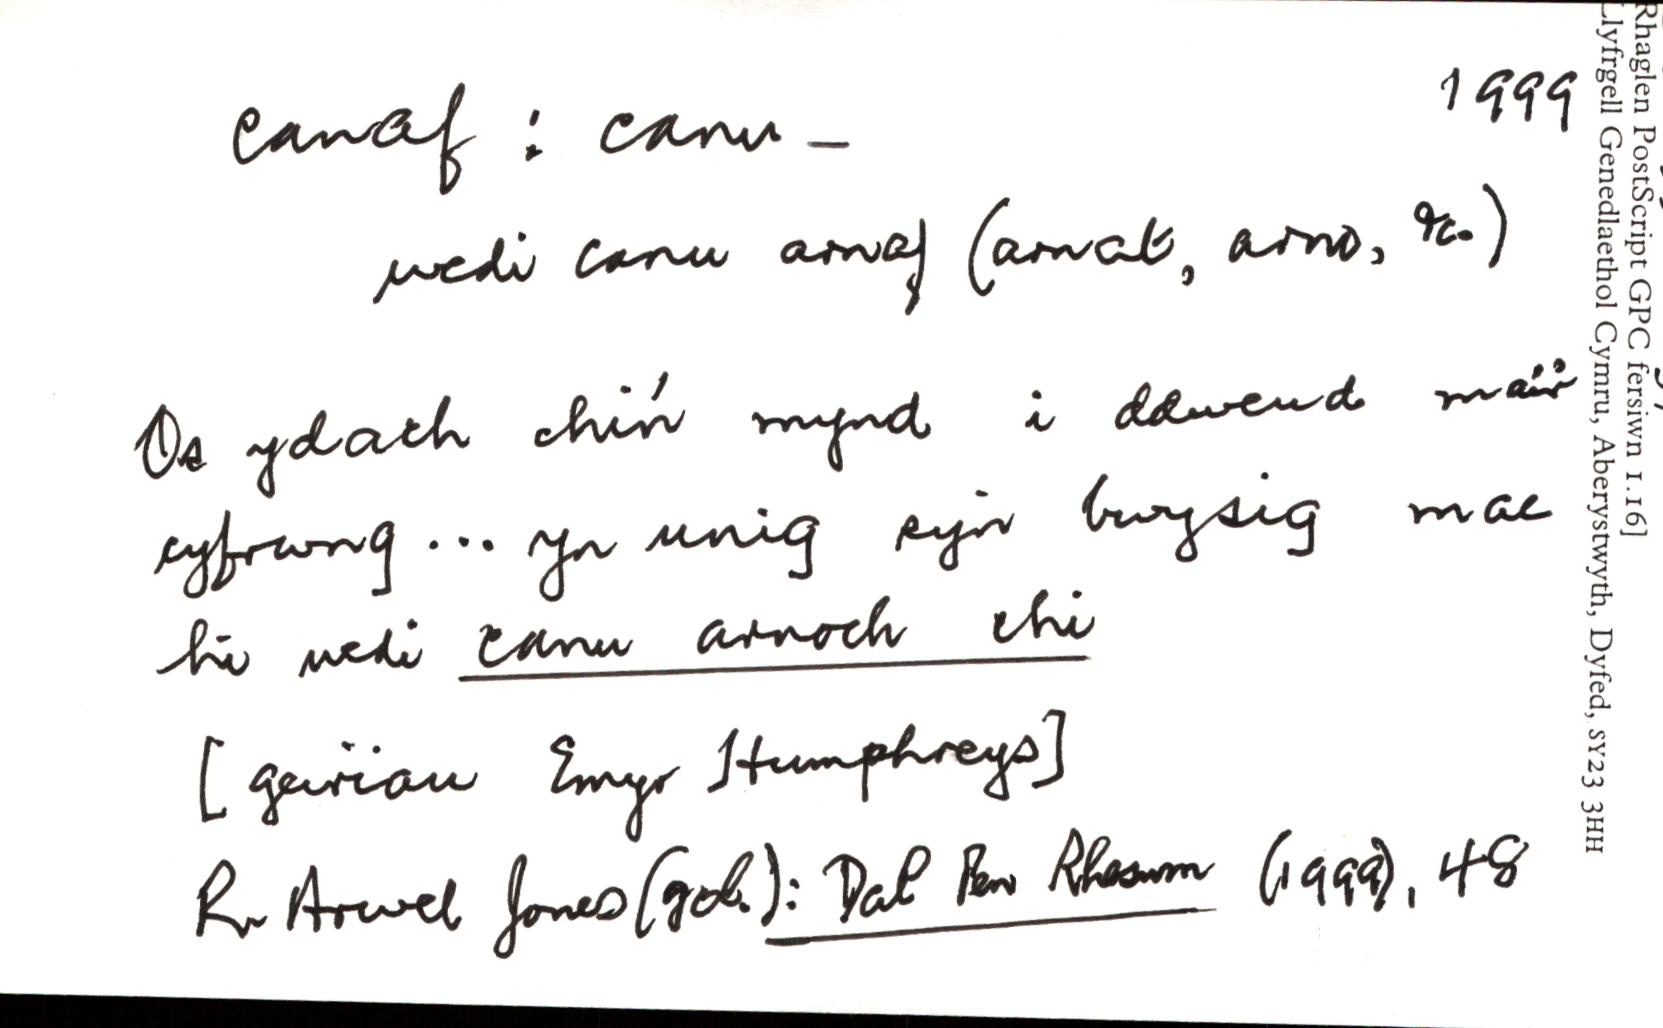 1999
canaf : canu –
wedi canu arnaf (arnat, arno, &c.)
Os ydach chi'n mynd i ddweud mai'r
cyfrwng ... yn unig sy'n bwysig mae
hi wedi canu arnoch chi
[geiriau Emyr Humphreys]
R. Arwel Jones (gol.): Dal Pen Rheswm (1999), 48
Rhaglen PostScript GPC fersiwn 1.16]
Llyfrgell Genedlaethol Cymru, Aberystwyth, Dyfed, SY23 3HH